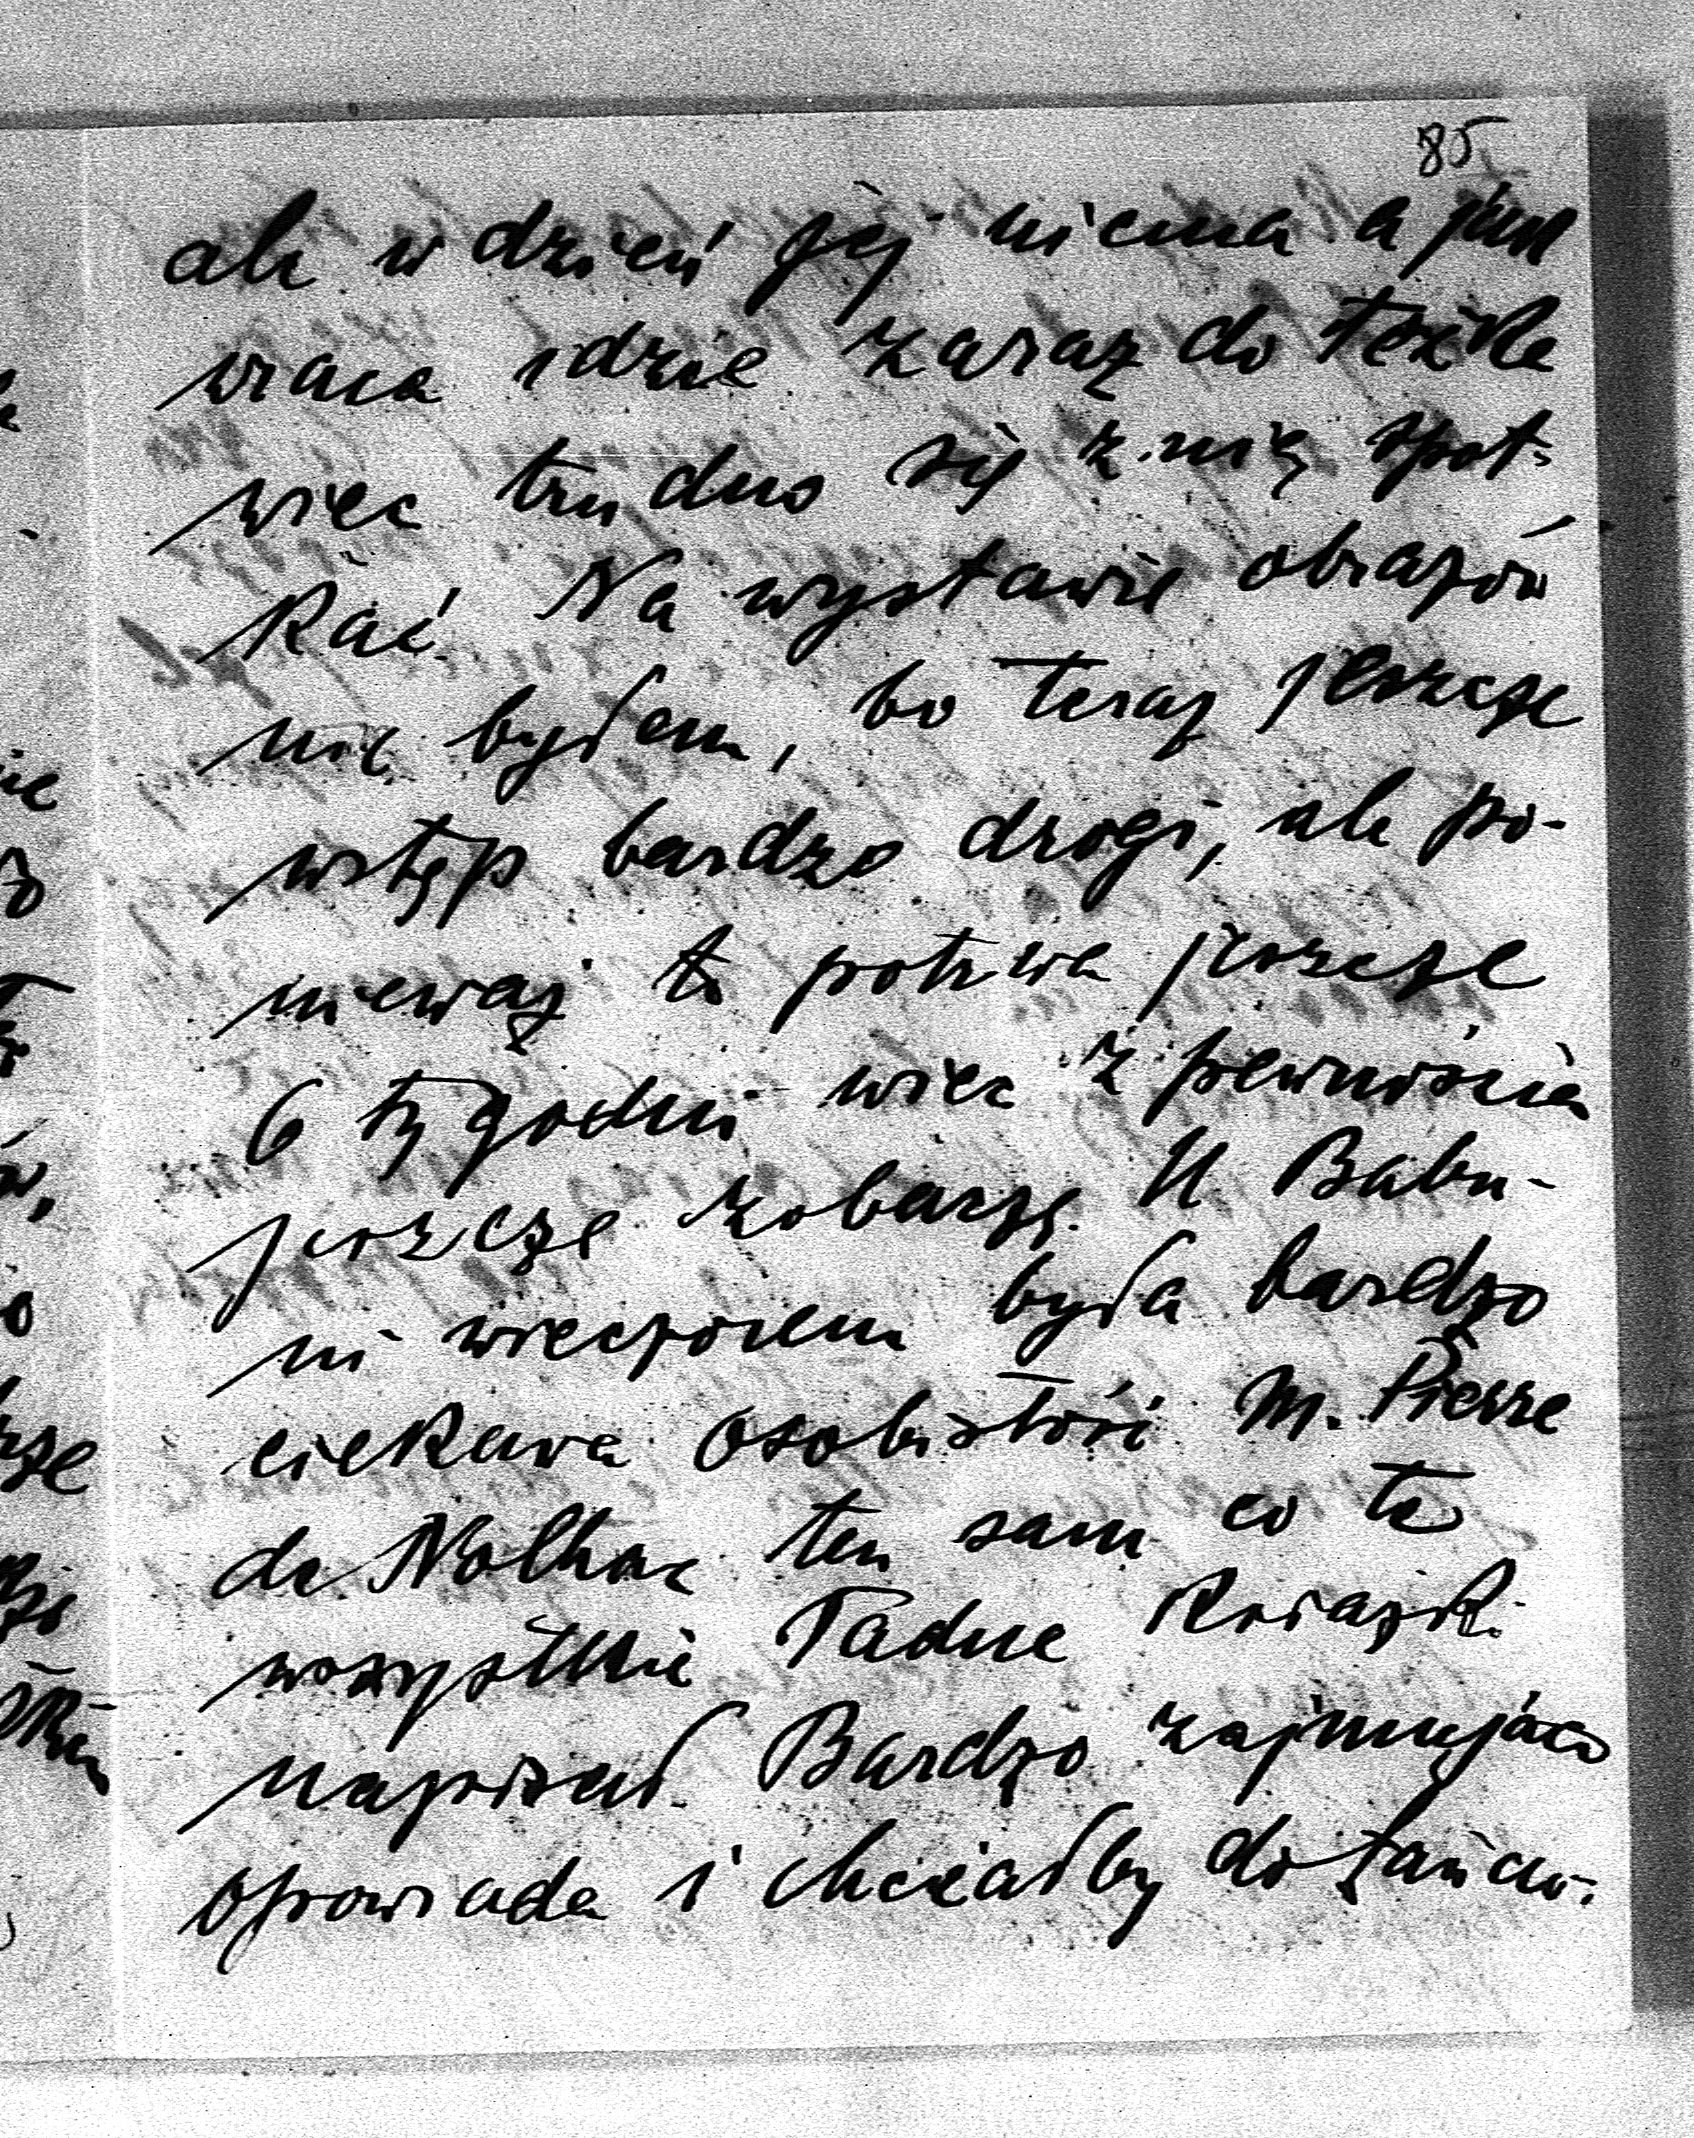 85
ale w dzień jej niema a jak
wraca idzie zaraz do łóżka
więc trudno się z nią spot-
kać. Na wystawie obrazów
nie byłem, bo teraz jeszcze
wstęp bardzo drogi, ale po-
nieważ to potrwa jeszcze
6 tygodni więc z pewnością
jeszcze zobaczę. U Babu-
ni wieczorem była bardzo
ciekawa osobistość M. Pierre
de Nolhac ten sam co te
wszystkie ładne książk.
napisał. Bardzo zajmująco
opowiada i chciałby do Łańcu-